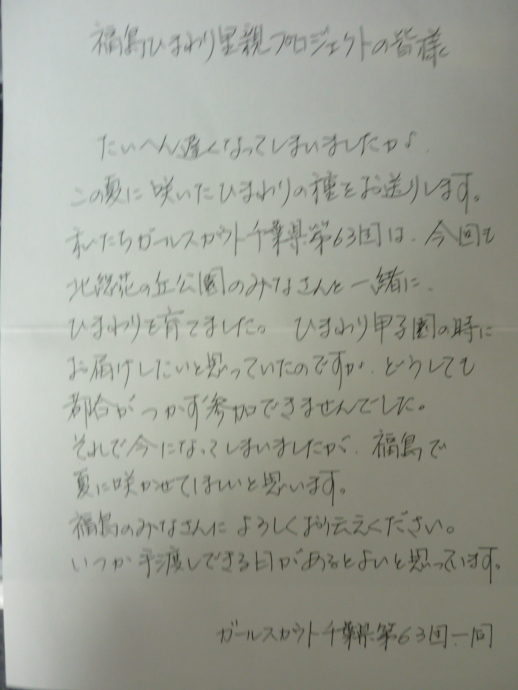 福島ひまわり里親プロジェクトの皆様
たいへん遅くなってしまいましたが、
この夏に咲いたひまわりの種をお送りします。
私たちガールスカウト千葉県第63団は、今回も
北総花の丘公園のみなさんと一緒に、
ひまわりを育てました。ひまわり甲子園の時に
お届けしたいと思っていたのですが、どうしても
都合がつかず参加できませんでした。
それで今になってしまいましたが、福島で
夏に咲かせてほしいと思います。
福島のみなさんによろしくお伝えください。
いつか手渡しできる日があるとよいと思っています。
ガールスカウト千葉県第63団一同